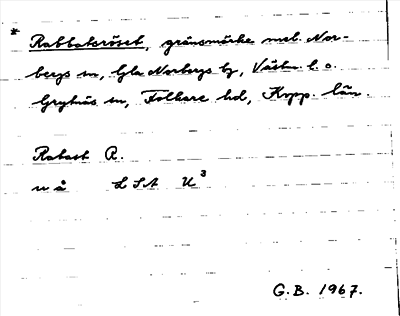 * Rabbatsröset, gränsmärke mel. Nor-
bergs sn, Gla Norbergs bg, Västm. l. o.
Grytnäs sn, Folkare hd, Kopp. län.
Rabast R.
u å L S A U³
G.B. 1967.